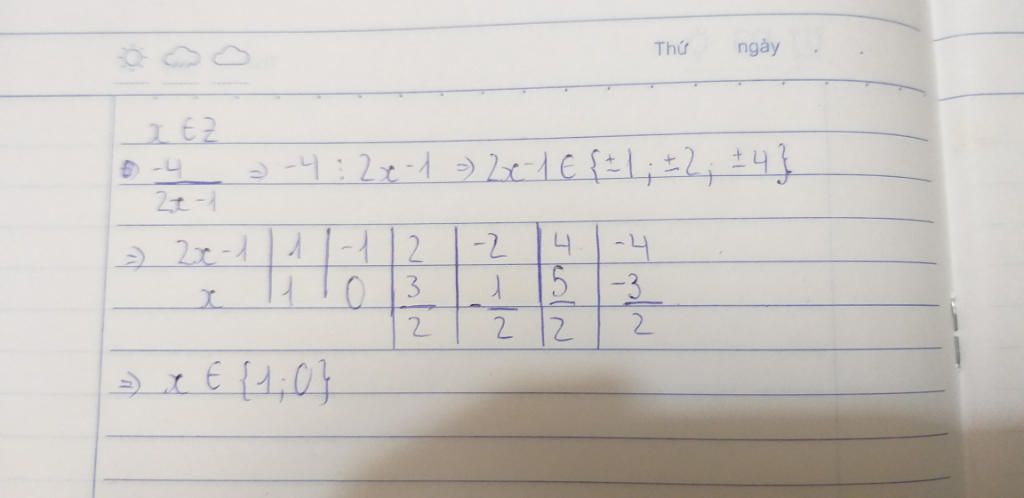 Thứ ngày . .
x ∈ Z
-4/2x-1 => -4 ⋮ 2x-1 => 2x-1 ∈ {±1; ±2; ±4}
=> 2x-1 | 1 | -1 | 2 | -2 | 4 | -4
x | 1 | 0 | 3/2 | -1/2 | 5/2 | -3/2
=> x ∈ {1;0}